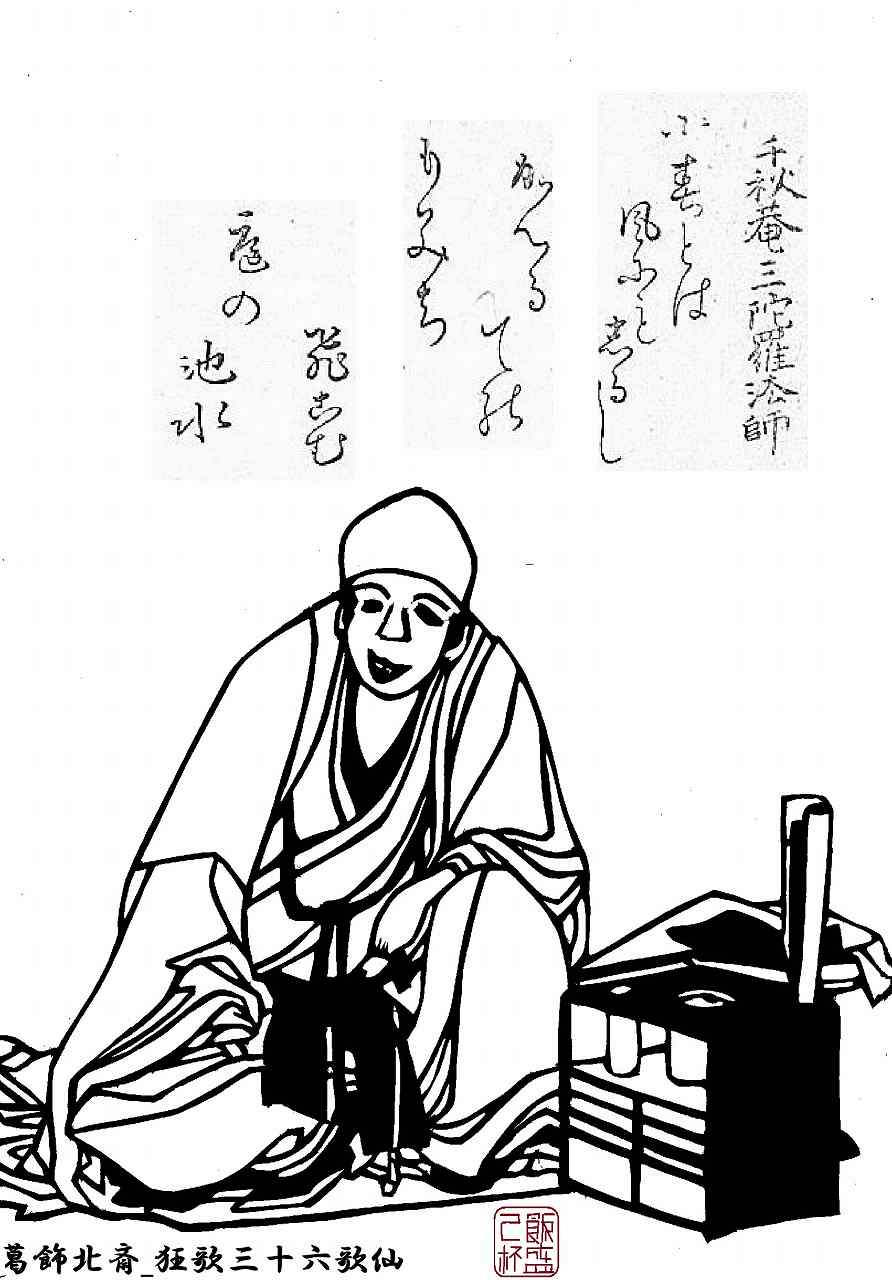 千秋菴三陀羅法師
小春とは
風にも
志るし
かへる
ての
もみち
飛こむ
庭の
池水
葛飾北斎_狂歌三十六歌仙
飯盛
己杯